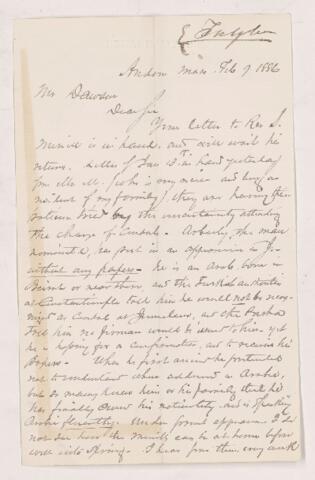 Andover Mass. Feb 9 1886
Mr Dawson
Dear Sir
Your letter to Rev S.
Merrill is in hand, and will wait his
return. Letter of Jan 13 in hand yesterday
from Mrs M. (who is my niece and long a
resident of my family). They are having their
patience tried by the uncertainty attending
the change of Consuls. the man
nominated, has put in an appearance in J.
without any papers. He is an Arab born in
Beirut or near there, and the Turkish authorities
at Constantinople told him he would not be recog-
nized as Consul at Jerusalem, and the Pasha
told him no firman would be issued to him - yet
he is hoping for a confirmation, and to receive his
papers. When he first arrived he pretended
not to understand when addressed in Arabic,
but so many knew him or his family that he
has finally owned his nationality and is speaking
Arabic fluently. Under present appearances I do
not see how the Merrills can be at home before
well into Spring. I hear from them every week